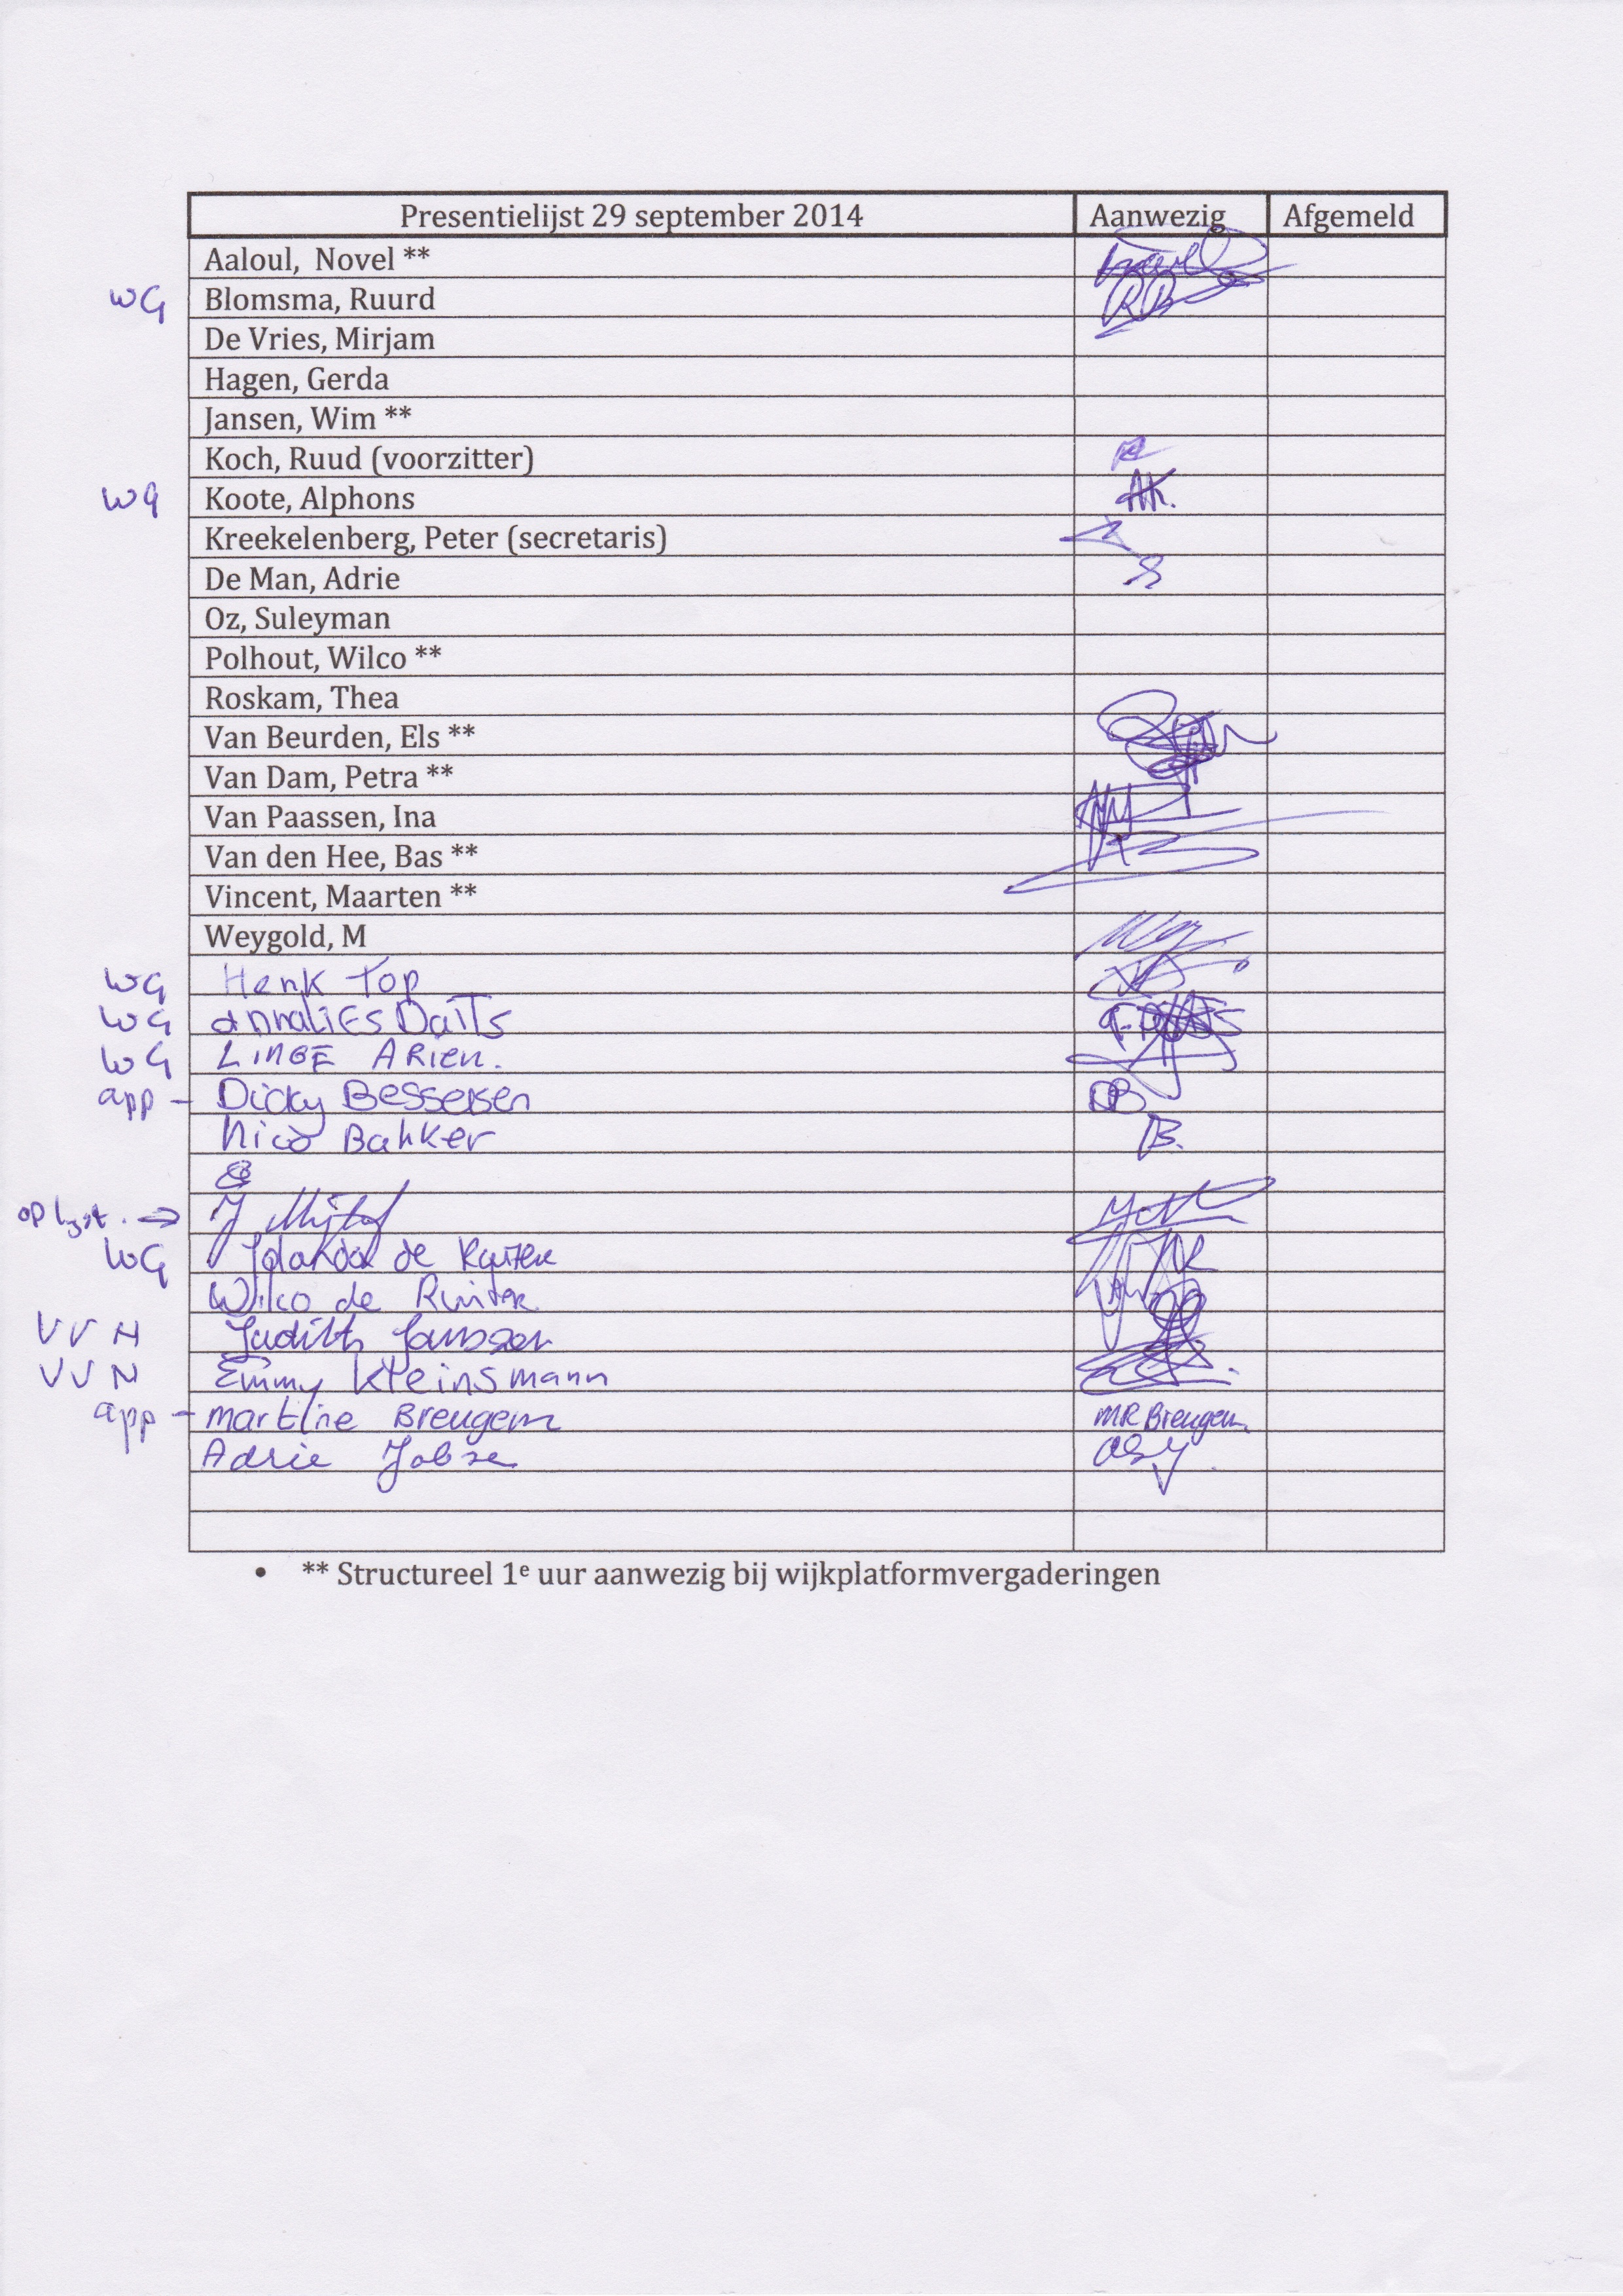 Presentielijst 29 september 2014 Aanwezig Afgemeld
Aaloul, Novel **
WG Blomsma, Ruurd RB
De Vries, Mirjam
Hagen, Gerda
Jansen, Wim **
Koch, Ruud (voorzitter)
WG Koote, Alphons AK.
Kreekelenberg, Peter (secretaris)
De Man, Adrie
Oz, Suleyman
Polhout, Wilco **
Roskam, Thea
Van Beurden, Els **
Van Dam, Petra **
Van Paassen, Ina
Van den Hee, Bas **
Vincent, Maarten **
Weygold, M
WG Henk Top
WG annaliEs DaiTs
WG LINGE ARIEN.
app - Dicky Bessersen DB
Nico Bakker B.
op lijst. →
WG Jolanda de
Wilco de Ruiter
VVN Judith Janssen
VVN Emmy Kleinsmann
app - martine Breugem MR Breugem
Adrie Jobse
• ** Structureel 1e uur aanwezig bij wijkplatformvergaderingen